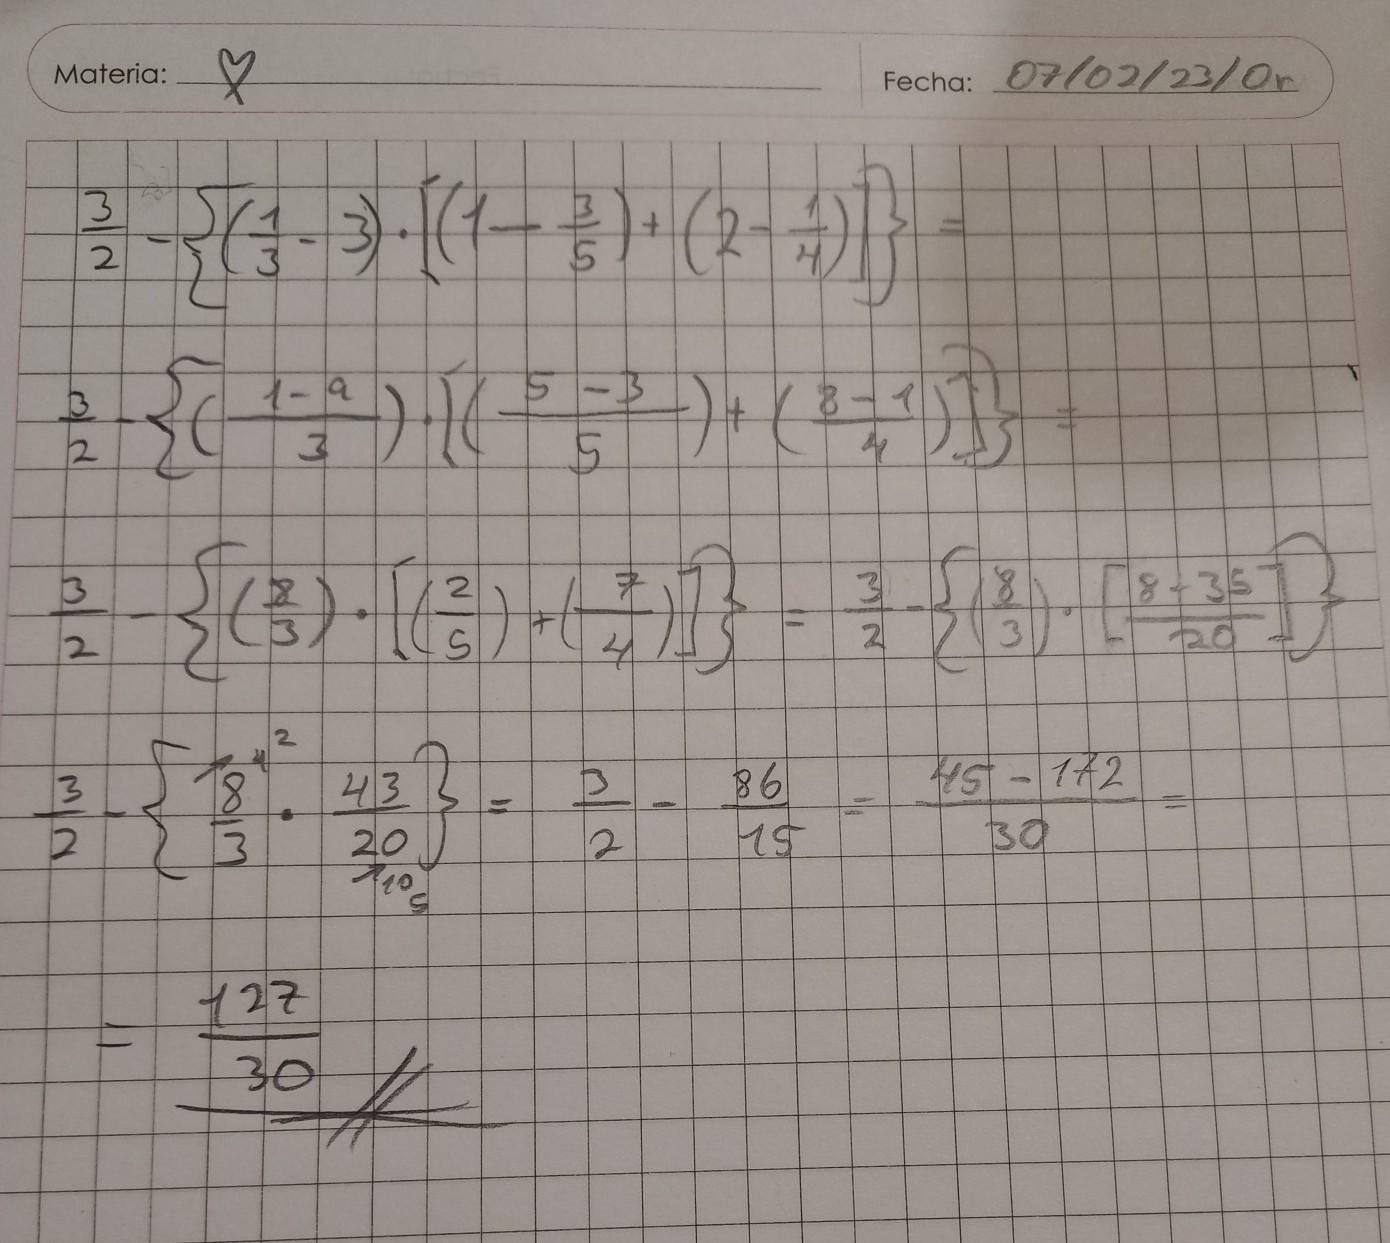 Materia: Fecha: 07/02/23/Or
3/2 - {(1/3 - 3) · [(1 - 3/5) + (2 - 1/4)]} =
3/2 - {((1-9)/3) · [((5-3)/5) + ((8-1)/4)]} =
3/2 - {(8/3) · [(2/5) + (7/4)]} = 3/2 - {(8/3) · [(8+35)/20]}
3/2 - {8/3 4 2 · 43/20 10 5} = 3/2 - 86/15 = (45-172)/30 =
= 127/30